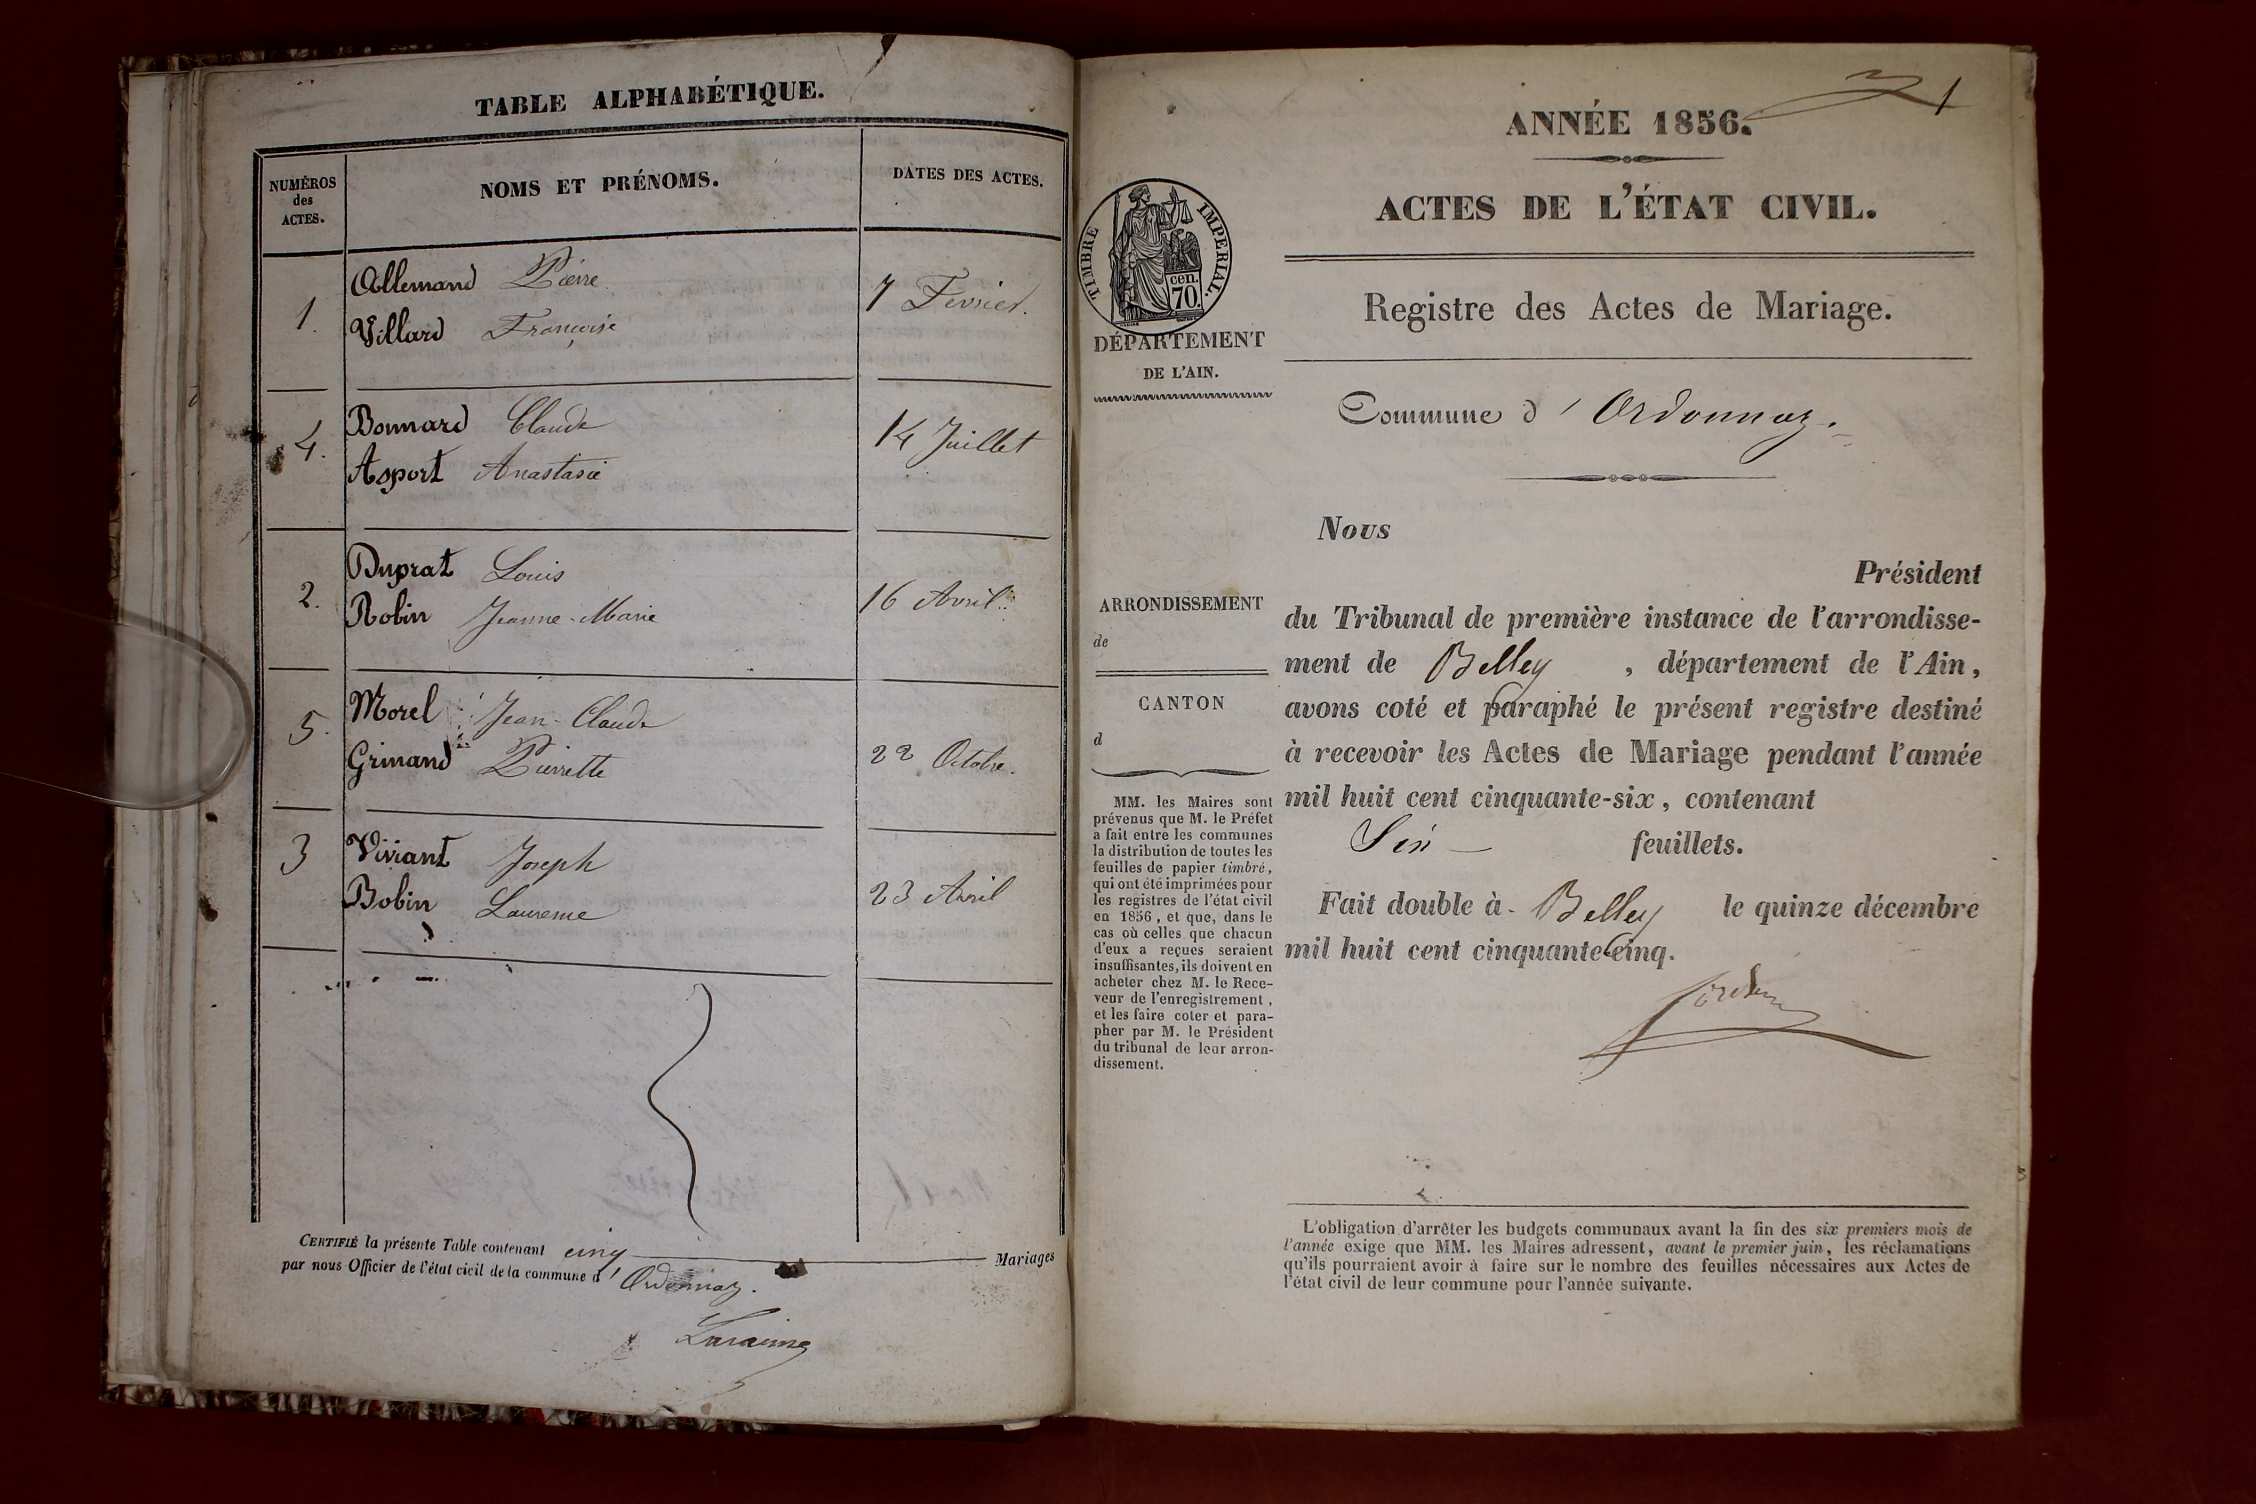 TABLE ALPHABÉTIQUE.
NUMÉROS
des
ACTES.
NOMS ET PRÉNOMS.
DATES DES ACTES.
1.
Allemand Pierre
Villard Françoise
7 Fevrier.
4.
Bonnard Claude
Asport Anastasie
14 Juillet
2.
Duprat Louis
Robin Jeanne-Marie
16 Avril
5.
Morel Jean-Claude
Grinand Pierrette
22 Octobre.
3
Viviant Joseph
Bobin Laurence
23 Avril
CERTIFIÉ la présente Table contenant cinq Mariages
par nous Officier de l'état civil de la commune d'Ordonnaz.
1
ANNÉE 1856.
ACTES DE L'ÉTAT CIVIL.
TIMBRE IMPERIAL.
cen.
70.
DÉPARTEMENT
DE L'AIN.
Registre des Actes de Mariage.
Commune d'Ordonnaz.
Nous
Président
du Tribunal de première instance de l'arrondisse-
ment de Belley, département de l'Ain,
avons coté et paraphé le présent registre destiné
à recevoir les Actes de Mariage pendant l'année
mil huit cent cinquante-six, contenant
Six feuillets.
Fait double à Belley le quinze décembre
mil huit cent cinquante-cinq.
ARRONDISSEMENT
de
CANTON
d
MM. les Maires sont
prévenus que M. le Préfet
a fait entre les communes
la distribution de toutes les
feuilles de papier timbré,
qui ont été imprimées pour
les registres de l'état civil
en 1856, et que, dans le
cas où celles que chacun
d'eux a reçues seraient
insuffisantes, ils doivent en
acheter chez M. le Rece-
veur de l'enregistrement,
et les faire coter et para-
pher par M. le Président
du tribunal de leur arron-
dissement.
L'obligation d'arrêter les budgets communaux avant la fin des six premiers mois de
l'année exige que MM. les Maires adressent, avant le premier juin, les réclamations
qu'ils pourraient avoir à faire sur le nombre des feuilles nécessaires aux Actes de
l'état civil de leur commune pour l'année suivante.